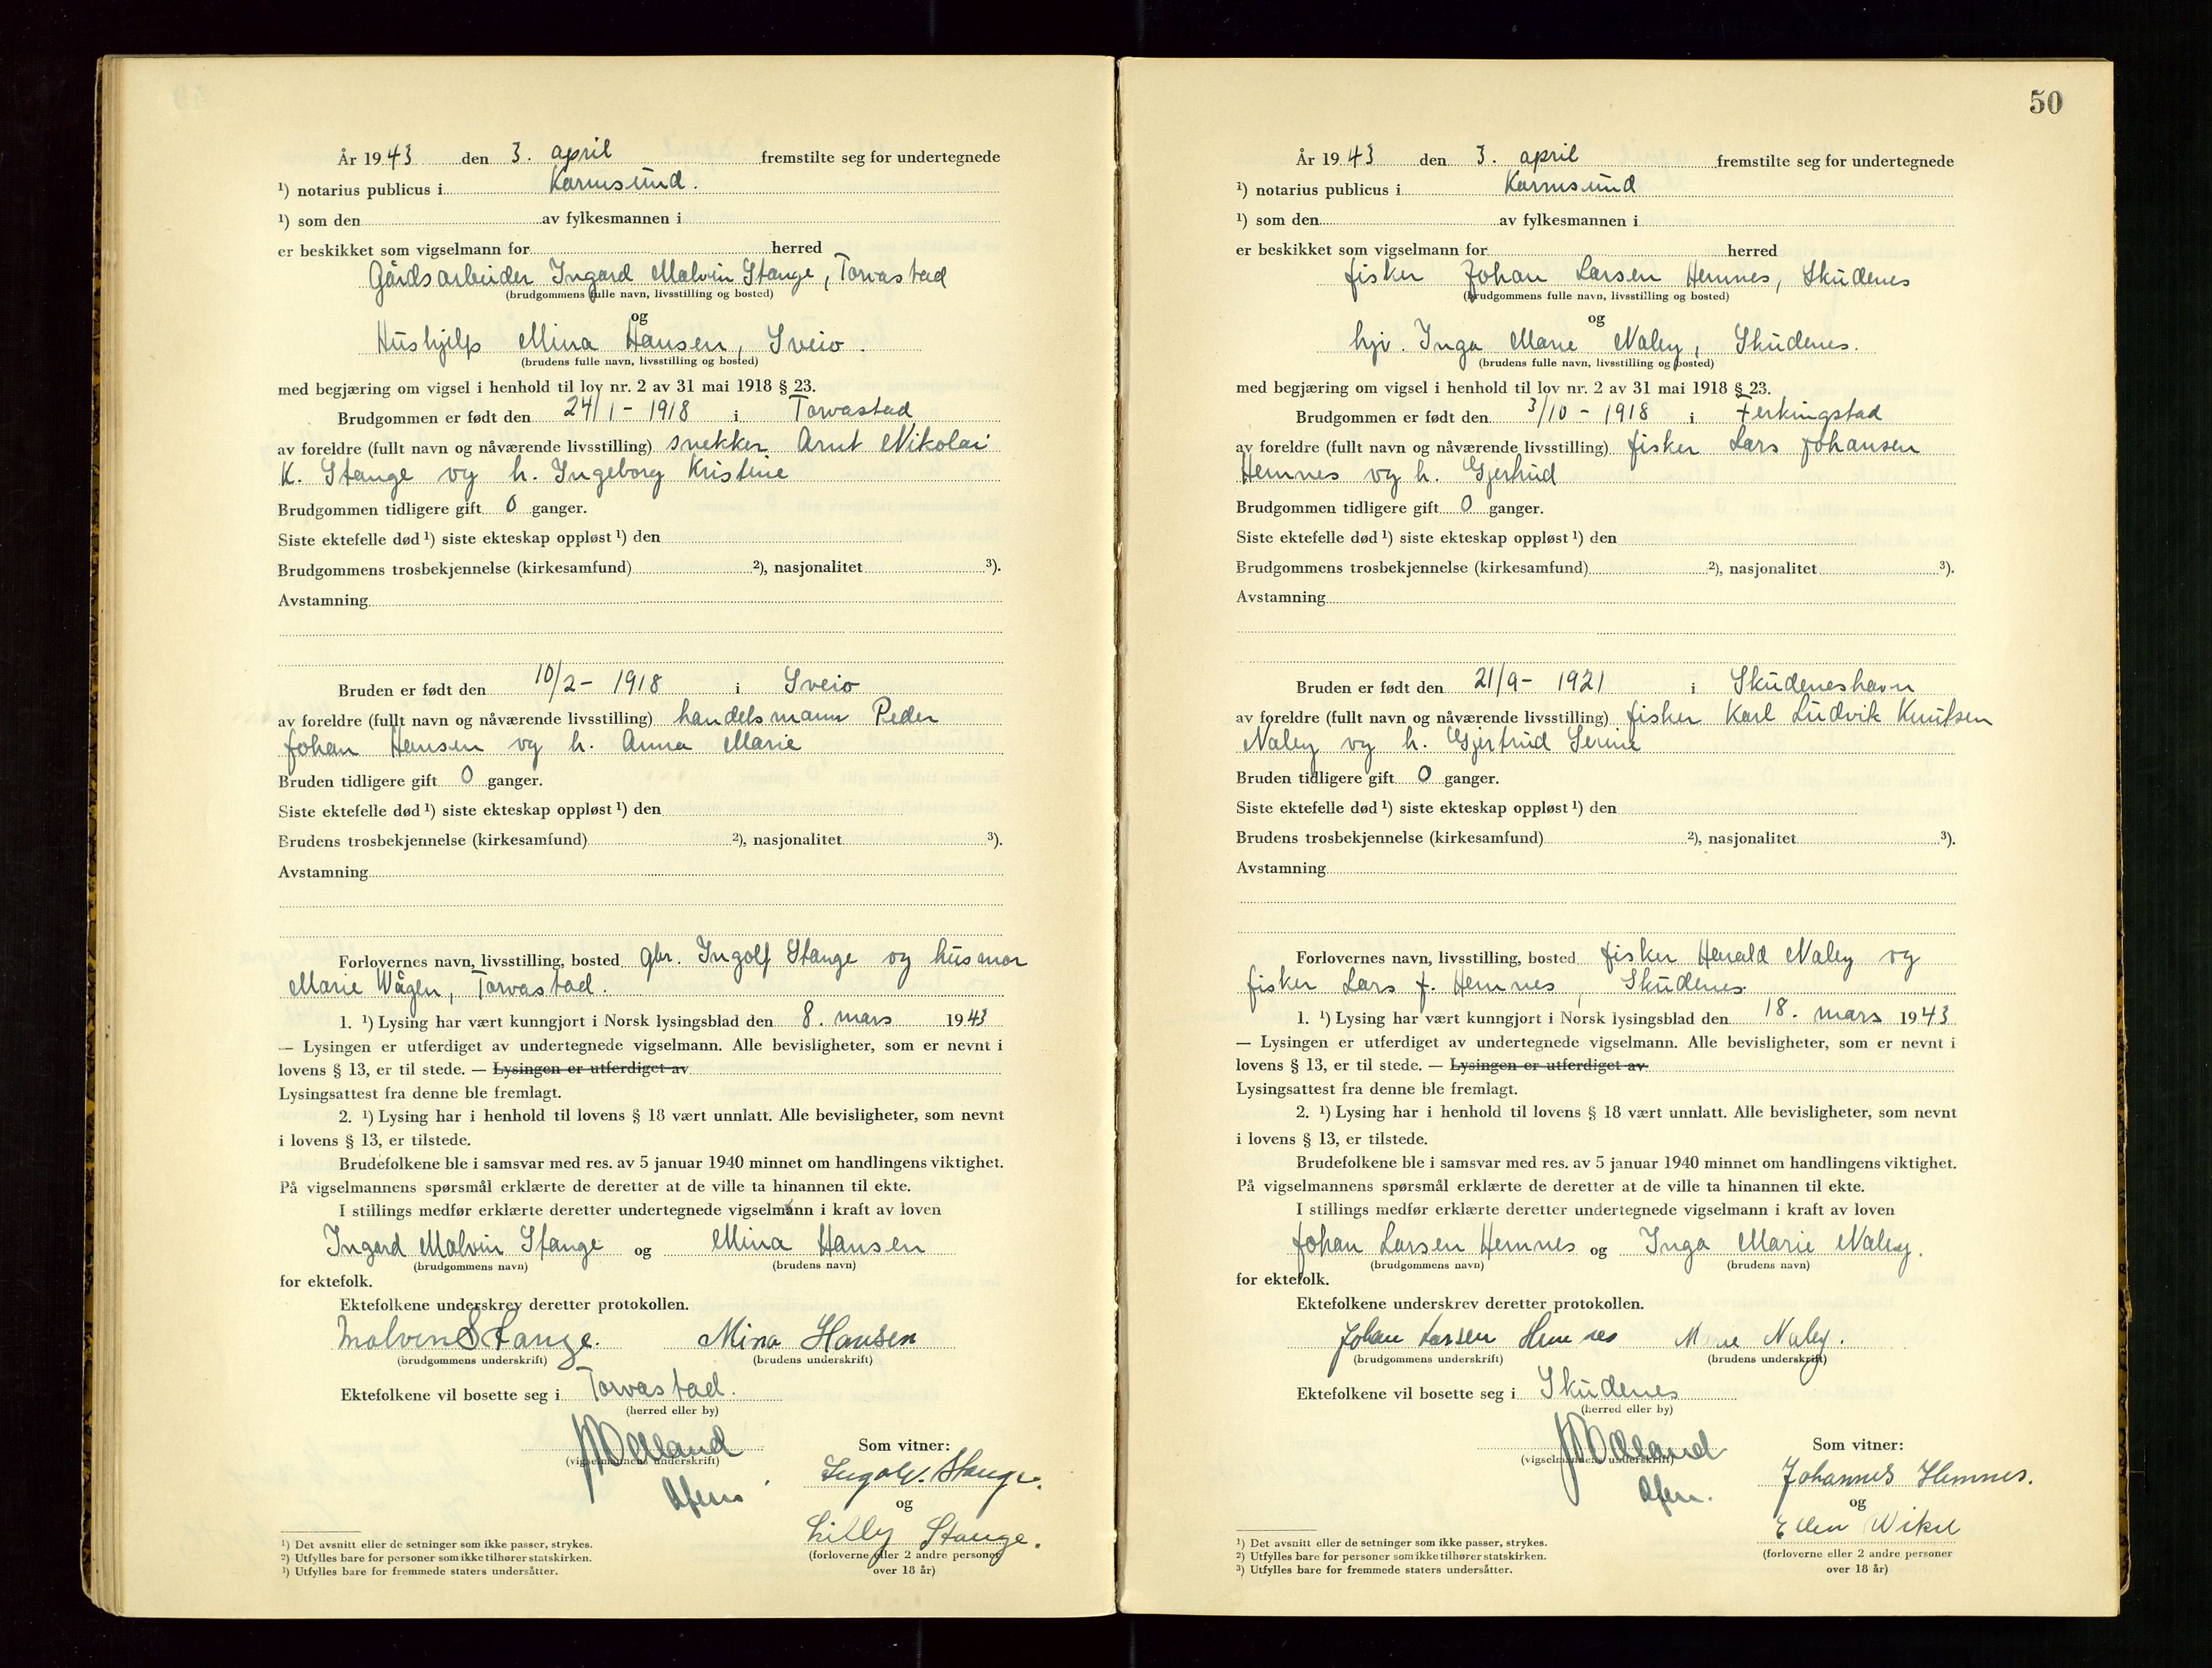 År 1943 den 3. april fremstilte seg for undertegnede
¹) notarius publicus i Karmsund.
¹) som den av fylkesmannen i
er beskikket som vigselmann for herred
Gårdsarbeider Ingard Malvin Stange, Torvastad
(brudgommens fulle navn, livsstilling og bosted)
og
Hushjelp Mina Hansen, Sveio.
(brudens fulle navn, livsstilling og bosted)
med begjæring om vigsel i henhold til lov nr. 2 av 31 mai 1918 § 23.
Brudgommen er født den 24/1 - 1918 i Torvastad
av foreldre (fullt navn og nåværende livsstilling) snekker Arnt Nikolai
K. Stange og h. Ingeborg Kristine
Brudgommen tidligere gift 0 ganger.
Siste ektefelle død ¹) siste ekteskap oppløst ¹) den
Brudgommens trosbekjennelse (kirkesamfund) ²), nasjonalitet ³).
Avstamning
Bruden er født den 10/2 - 1918 i Sveio
av foreldre (fullt navn og nåværende livsstilling) handelsmann Peder
Johan Hansen og h. Anna Marie
Bruden tidligere gift 0 ganger.
Siste ektefelle død ¹) siste ekteskap oppløst ¹) den
Brudens trosbekjennelse (kirkesamfund) ²), nasjonalitet ³).
Avstamning
Forlovernes navn, livsstilling, bosted gbr. Ingolf Stange og husmor
Marie Vågen, Torvastad.
1. ¹) Lysing har vært kunngjort i Norsk lysingsblad den 8. mars 1943
— Lysingen er utferdiget av undertegnede vigselmann. Alle bevisligheter, som er nevnt i
lovens § 13, er til stede. — Lysingen er utferdiget av
Lysingsattest fra denne ble fremlagt.
2. ¹) Lysing har i henhold til lovens § 18 vært unnlatt. Alle bevisligheter, som nevnt
i lovens § 13, er tilstede.
Brudefolkene ble i samsvar med res. av 5 januar 1940 minnet om handlingens viktighet.
På vigselmannens spørsmål erklærte de deretter at de ville ta hinannen til ekte.
I stillings medfør erklærte deretter undertegnede vigselmann i kraft av loven
Ingard Malvin Stange og Mina Hansen
(brudgommens navn) (brudens navn)
for ektefolk.
Ektefolkene underskrev deretter protokollen.
Malvin Stange. Mina Hansen
(brudgommens underskrift) (brudens underskrift)
Ektefolkene vil bosette seg i Torvastad.
(herred eller by)
(vigselmannens underskrift)
Som vitner:
Ingolv. Stange.
og
Lilly Stange.
(forloverne eller 2 andre personer
over 18 år)
¹) Det avsnitt eller de setninger som ikke passer, strykes.
²) Utfylles bare for personer som ikke tilhører statskirken.
³) Utfylles bare for fremmede staters undersåtter.
50
År 1943 den 3. april fremstilte seg for undertegnede
¹) notarius publicus i Karmsund
¹) som den av fylkesmannen i
er beskikket som vigselmann for herred
fisker Johan Larsen Hemnes, Skudenes
(brudgommens fulle navn, livsstilling og bosted)
og
hjv. Inga Marie Naley, Skudenes.
(brudens fulle navn, livsstilling og bosted)
med begjæring om vigsel i henhold til lov nr. 2 av 31 mai 1918 § 23.
Brudgommen er født den 3/10 - 1918 i Ferkingstad
av foreldre (fullt navn og nåværende livsstilling) fisker Lars Johansen
Hemnes og h. Gjertrud
Brudgommen tidligere gift 0 ganger.
Siste ektefelle død ¹) siste ekteskap oppløst ¹) den
Brudgommens trosbekjennelse (kirkesamfund) ²), nasjonalitet ³).
Avstamning
Bruden er født den 21/9 - 1921 i Skudeneshavn
av foreldre (fullt navn og nåværende livsstilling) fisker Karl Ludvik Knutsen
Naley og h. Gjertrud Serine
Bruden tidligere gift 0 ganger.
Siste ektefelle død ¹) siste ekteskap oppløst ¹) den
Brudens trosbekjennelse (kirkesamfund) ²), nasjonalitet ³).
Avstamning
Forlovernes navn, livsstilling, bosted fisker Harald Naley og
fisker Lars J. Hemnes, Skudenes
1. ¹) Lysing har vært kunngjort i Norsk lysingsblad den 18. mars 1943
— Lysingen er utferdiget av undertegnede vigselmann. Alle bevisligheter, som er nevnt i
lovens § 13, er til stede. — Lysingen er utferdiget av
Lysingsattest fra denne ble fremlagt.
2. ¹) Lysing har i henhold til lovens § 18 vært unnlatt. Alle bevisligheter, som nevnt
i lovens § 13, er tilstede.
Brudefolkene ble i samsvar med res. av 5 januar 1940 minnet om handlingens viktighet.
På vigselmannens spørsmål erklærte de deretter at de ville ta hinannen til ekte.
I stillings medfør erklærte deretter undertegnede vigselmann i kraft av loven
Johan Larsen Hemnes og Inga Marie Naley.
(brudgommens navn) (brudens navn)
for ektefolk.
Ektefolkene underskrev deretter protokollen.
Johan Larsen Hemnes Marie Naley.
(brudgommens underskrift) (brudens underskrift)
Ektefolkene vil bosette seg i Skudenes
(herred eller by)
(vigselmannens underskrift)
Som vitner:
Johannes Hemnes.
og
Ellen
(forloverne eller 2 andre personer
over 18 år)
¹) Det avsnitt eller de setninger som ikke passer, strykes.
²) Utfylles bare for personer som ikke tilhører statskirken.
³) Utfylles bare for fremmede staters undersåtter.